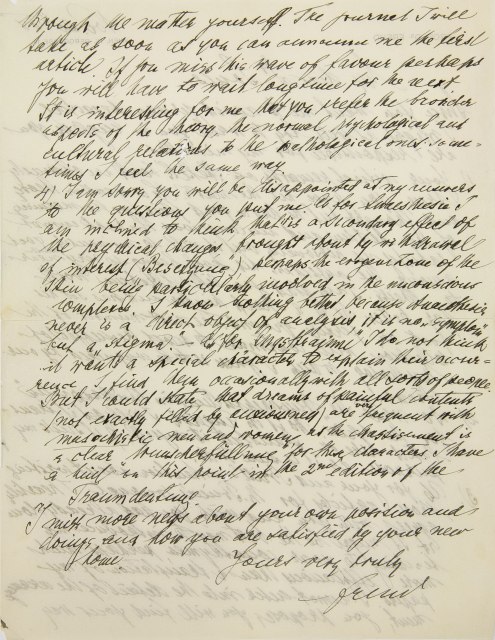 through the matter yourself. The journal I will
take as soon as you can announce me the first
article. If you miss this wave of favour perhaps
you will have to wait longtime for the next
It is interesting for me that you prefer the broader
aspects of the theory, the normal, psychological and
cultural relations to the pathological ones. Some-
times I feel the same way.
4) I am sorry you will be disappointed at my answers
to the questions you put me. As for Anaesthesia I
am inclined to think that is a secondary effect of
the psychical changes brought about by withdrawal
of interest (Besetzung) perhaps the erogenzone of the
skin being particularly involved in the unconscious
complexes. I know nothing better because Anaesthesia
never is a direct object of analysis it is no "symptom"
but a "stigma". — As for I do not think
it wants a special character to explain their occur-
rence, I find them occasionally with all sorts of people.
But I could state, that dreams of painful contents
(not exactly filled by anxiousness) are frequent with
masochistic men and women, as the chastisement is
a clear wunscherfüllung for these characters. I have
a hint on this point in the 2nd edition of the
Traumdeutung.
I miss more news about your own position and
doings and how you are satisfied by your new
home.
Yours very truly
Freud